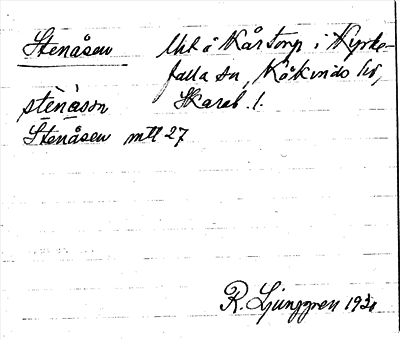 Stenåsen Uht å Kårtorp i Kyrke-
falla sn, Kåkinds hd,
Skarab. l.
stenåson
Stenåsen mtl 27
R. Ljunggren